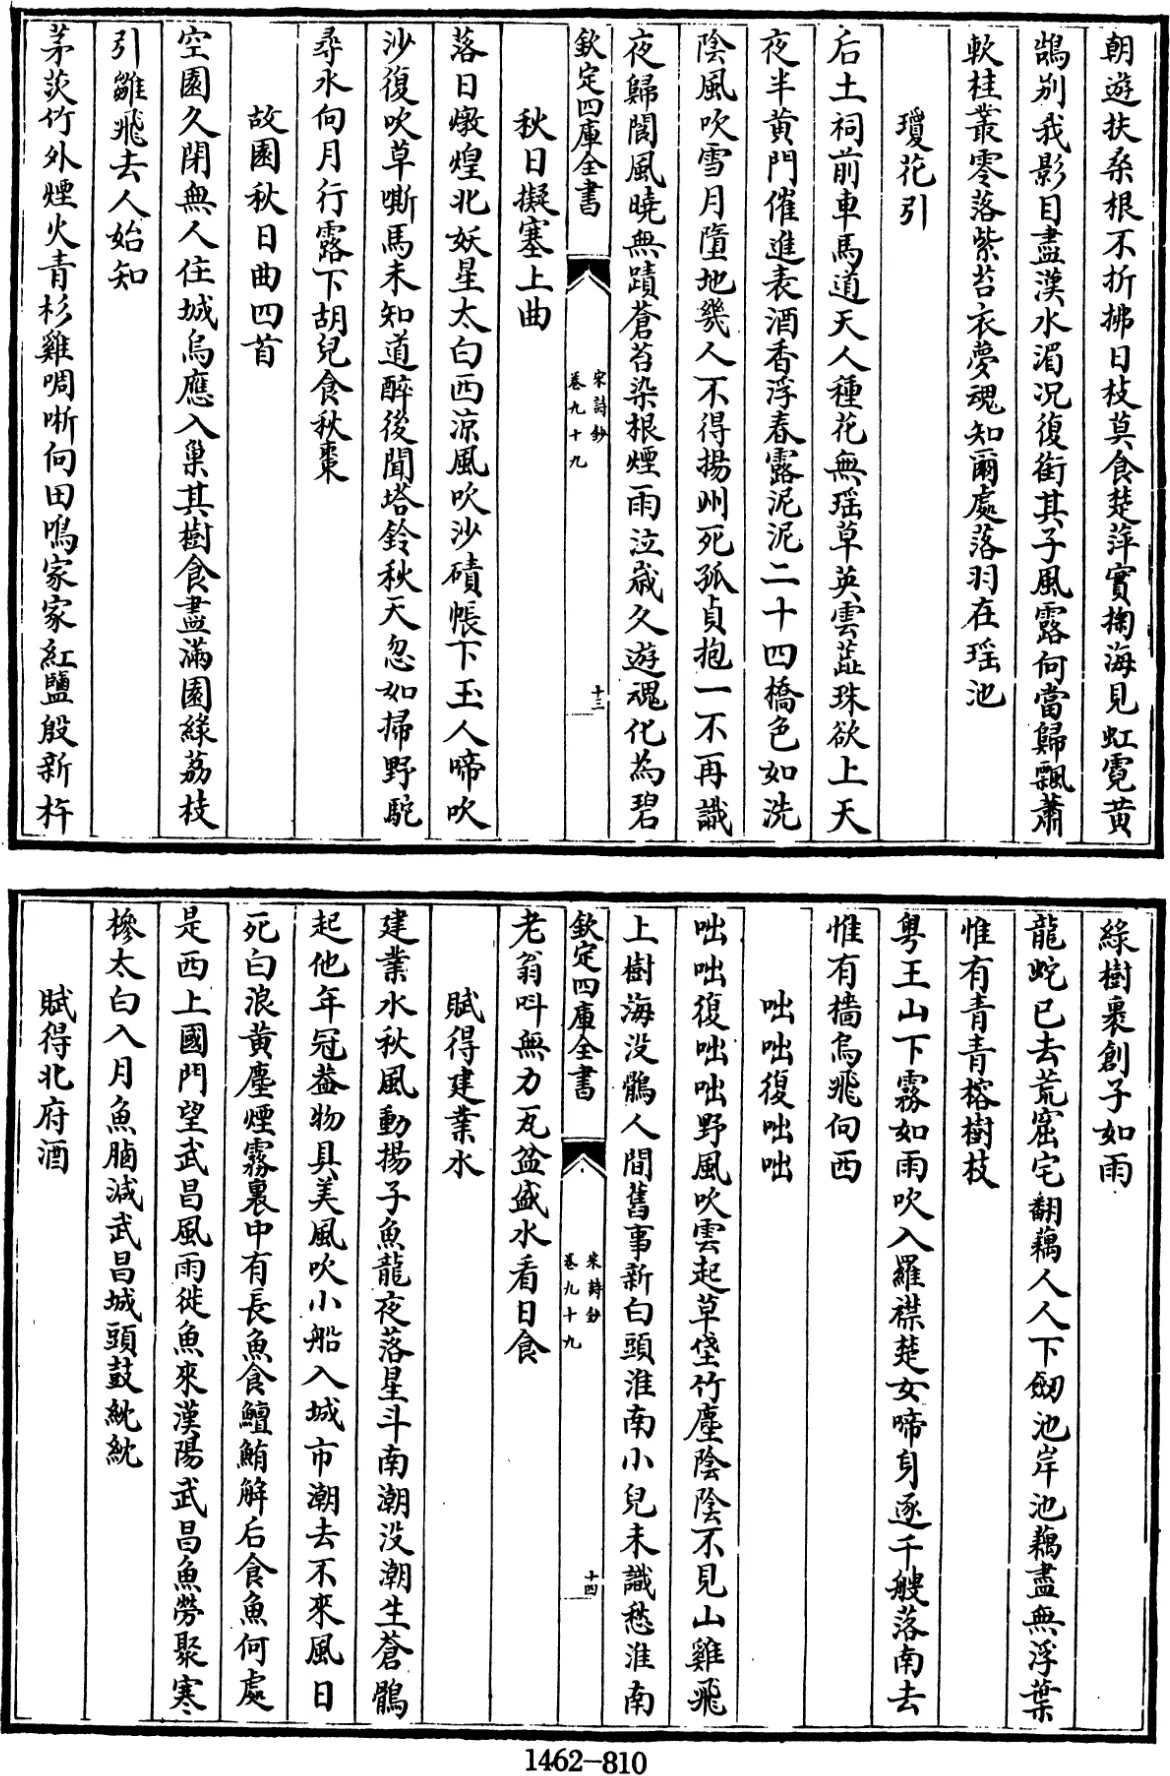 朝遊扶桑根不折拂日枝莫食楚萍實掬海見虹霓黄
鵠别我影目盡漢水湄况復銜其子風露何當歸飄蕭
軟桂叢零落紫苔衣夢魂知爾處落羽在瑶池
瓊花引
后土祠前車馬道天人種花無瑶草英雲蘂珠欲上天
夜半黄門催進表酒香浮春露泥泥二十四橋色如洗
陰風吹雪月墮地幾人不得揚州死孤貞抱一不再識
夜歸閬風曉無蹟蒼苔染根煙雨泣歲久遊魂化為碧
欽定四庫全書
宋詩鈔
卷九十九
十三
秋日擬塞上曲
落日燉煌北妖星太白西凉風吹沙磧帳下玉人啼吹
沙復吹草嘶馬未知道醉後聞塔鈴秋天忽如掃野駝
尋水向月行露下胡兒食秋棗
故園秋日曲四首
空園久閉無人住城烏應入巢其樹食盡滿園緑荔枝
引雛飛去人始知
茅茨竹外煙火青杉雞啁哳向田鳴家家紅鹽殷新杵
緑樹裹創子如雨
龍蛇已去荒窟宅翻藕人人下劒池岸池藕盡無浮葉
惟有青青榕樹枝
粤王山下霧如雨吹入羅襟楚女啼身逐千艘落南去
惟有檣烏飛向西
咄咄復咄咄
咄咄復咄咄野風吹雲起草垡竹塵陰陰不見山雞飛
上樹海没鶻人間舊事新白頭淮南小兒未識愁淮南
欽定四庫全書
宋詩鈔
卷九十九
十四
老翁呌無力瓦盆盛水看日食
賦得建業水
建業水秋風動揚子魚龍夜落星斗南潮没潮生蒼鶻
起他年冠葢物具美風吹小船入城市潮去不來風日
死白浪黄塵煙霧裏中有長魚食鱣鮪解后食魚何處
是西上國門望武昌風雨徙魚來漢陽武昌魚勞聚寒
槮太白入月魚腦减武昌城頭鼓紞紞
賦得北府酒
1462-810